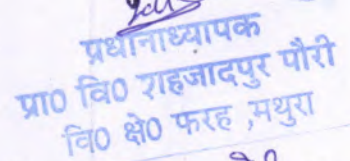 प्रधानाध्यापक
प्रा0 वि0 शहजादपुर पौरी
वि0 क्षे0 फरह ,मथुरा